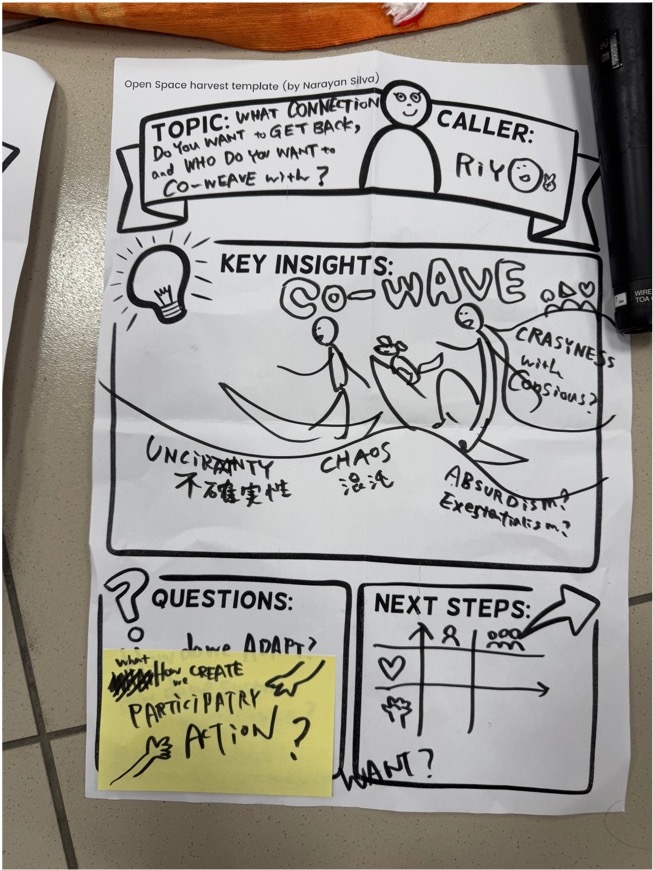 Open Space harvest template (by Narayan Silva)
TOPIC: WHAT CONNECTION
DO YOU WANT to GET BACK,
and WHO DO YOU WANT to
CO-WEAVE with?
CALLER:
RiYO
KEY INSIGHTS:
CO-WAVE
CRASYNESS
with
Consious?
UNCIRANTY
不確実性
CHAOS
混沌
ABSURDISM?
Exestentialism?
QUESTIONS:
do we ADAPT?
what
How we CREATE
PARTICIPATRY
ACTION?
WANT?
NEXT STEPS:
WIRE
TOA